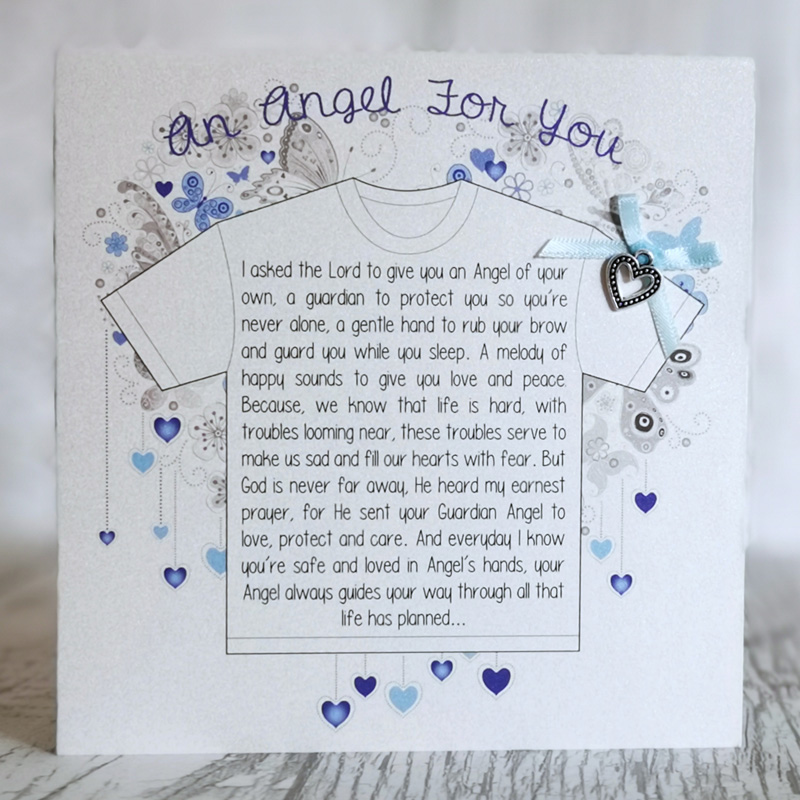 An Angel For You
I asked the Lord to give you an Angel of your
own, a guardian to protect you so you're
never alone, a gentle hand to rub your brow
and guard you while you sleep. A melody of
happy sounds to give you love and peace.
Because, we know that life is hard, with
troubles looming near, these troubles serve to
make us sad and fill our hearts with fear. But
God is never far away, He heard my earnest
prayer, for He sent your Guardian Angel to
love, protect and care. And everyday I know
you're safe and loved in Angel's hands, your
Angel always guides your way through all that
life has planned...